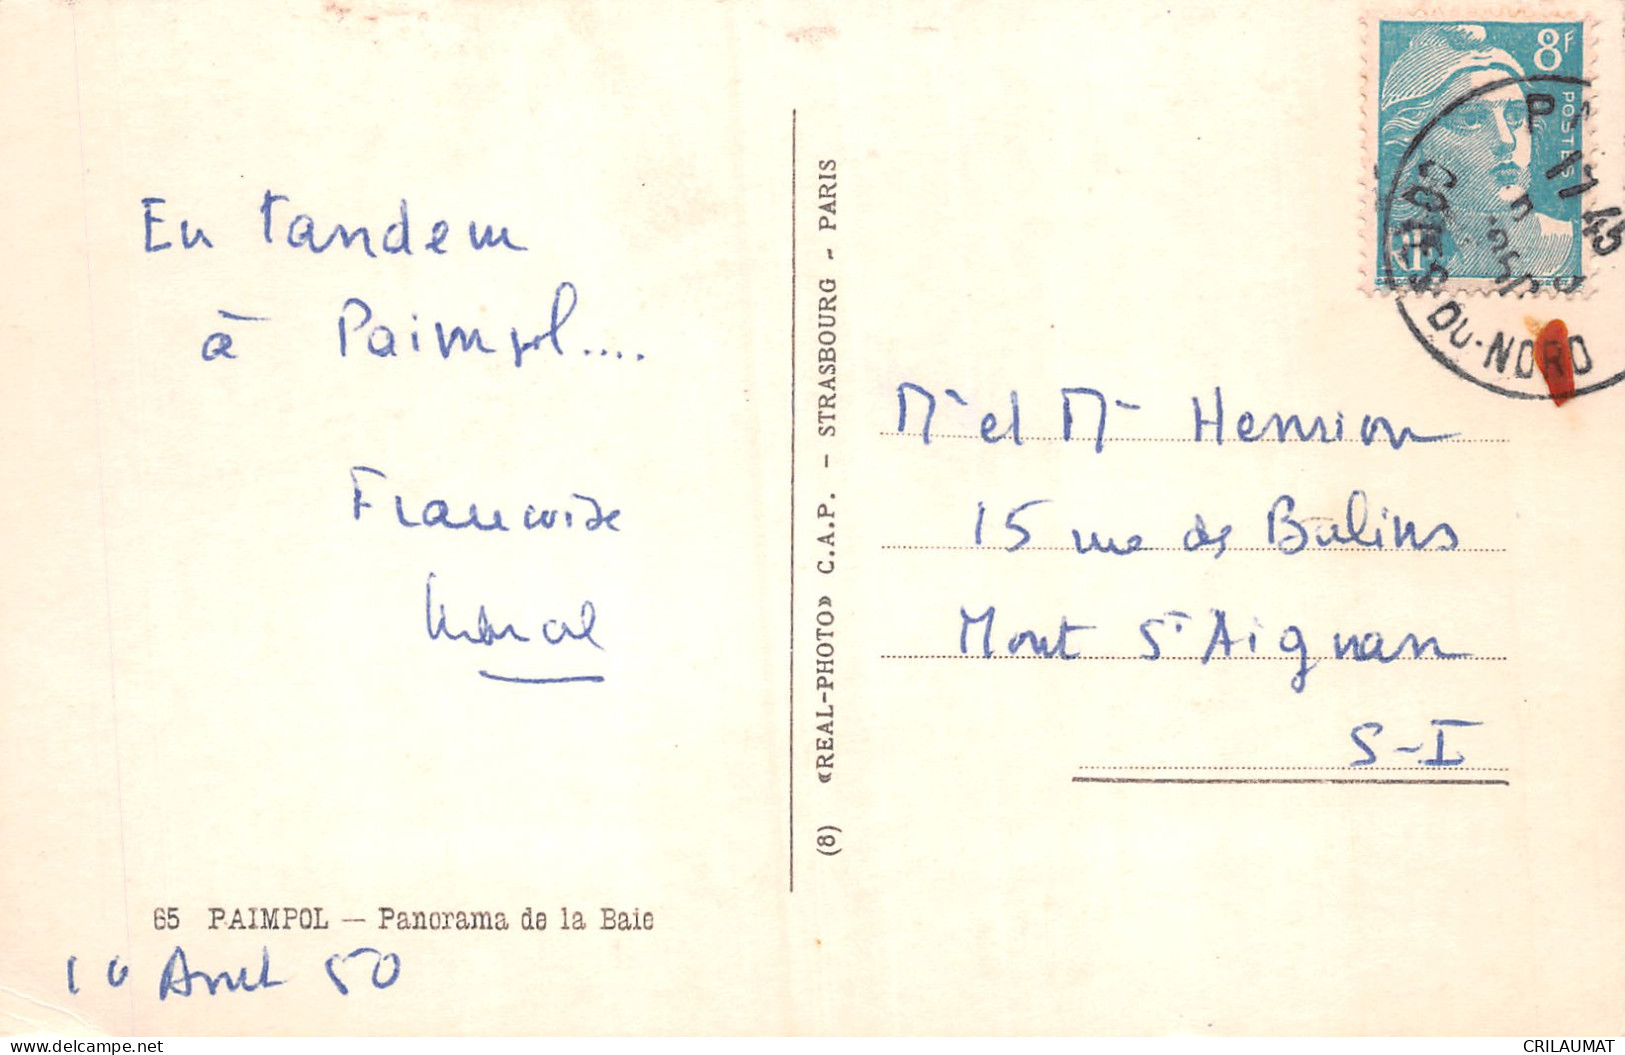 En tandem
à Paimpol....
Francoise
65 PAIMPOL — Panorama de la Baie
10 Avril 50
(8) «REAL-PHOTO» C.A.P. - STRASBOURG - PARIS
8F
POSTES
RF
17 45
COTES-DU-NORD
Mr et Mme Henrion
15 rue de Bulins
Mont St Aignan
S-I
CRILAUMAT